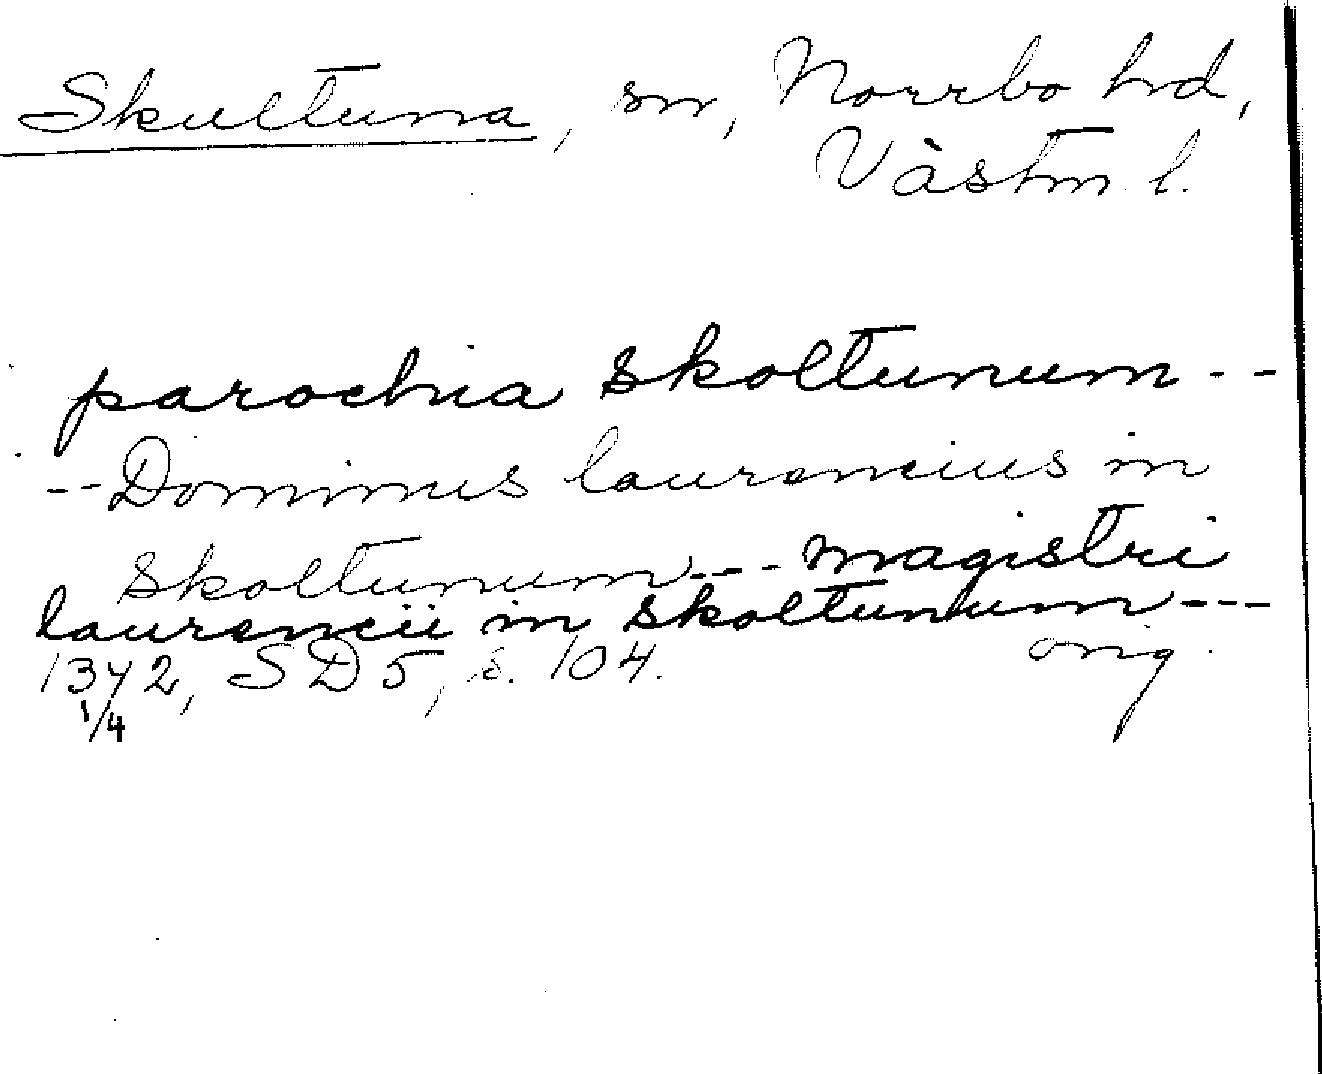 Skultuna, sn, Norrbo hd,
Västm. l.
parochia skoltunum --
-- Dominus laurencius in
skoltunum --- magistri
laurencii in skoltunum ---
1342, SD 5, s. 104. orig.
1/4